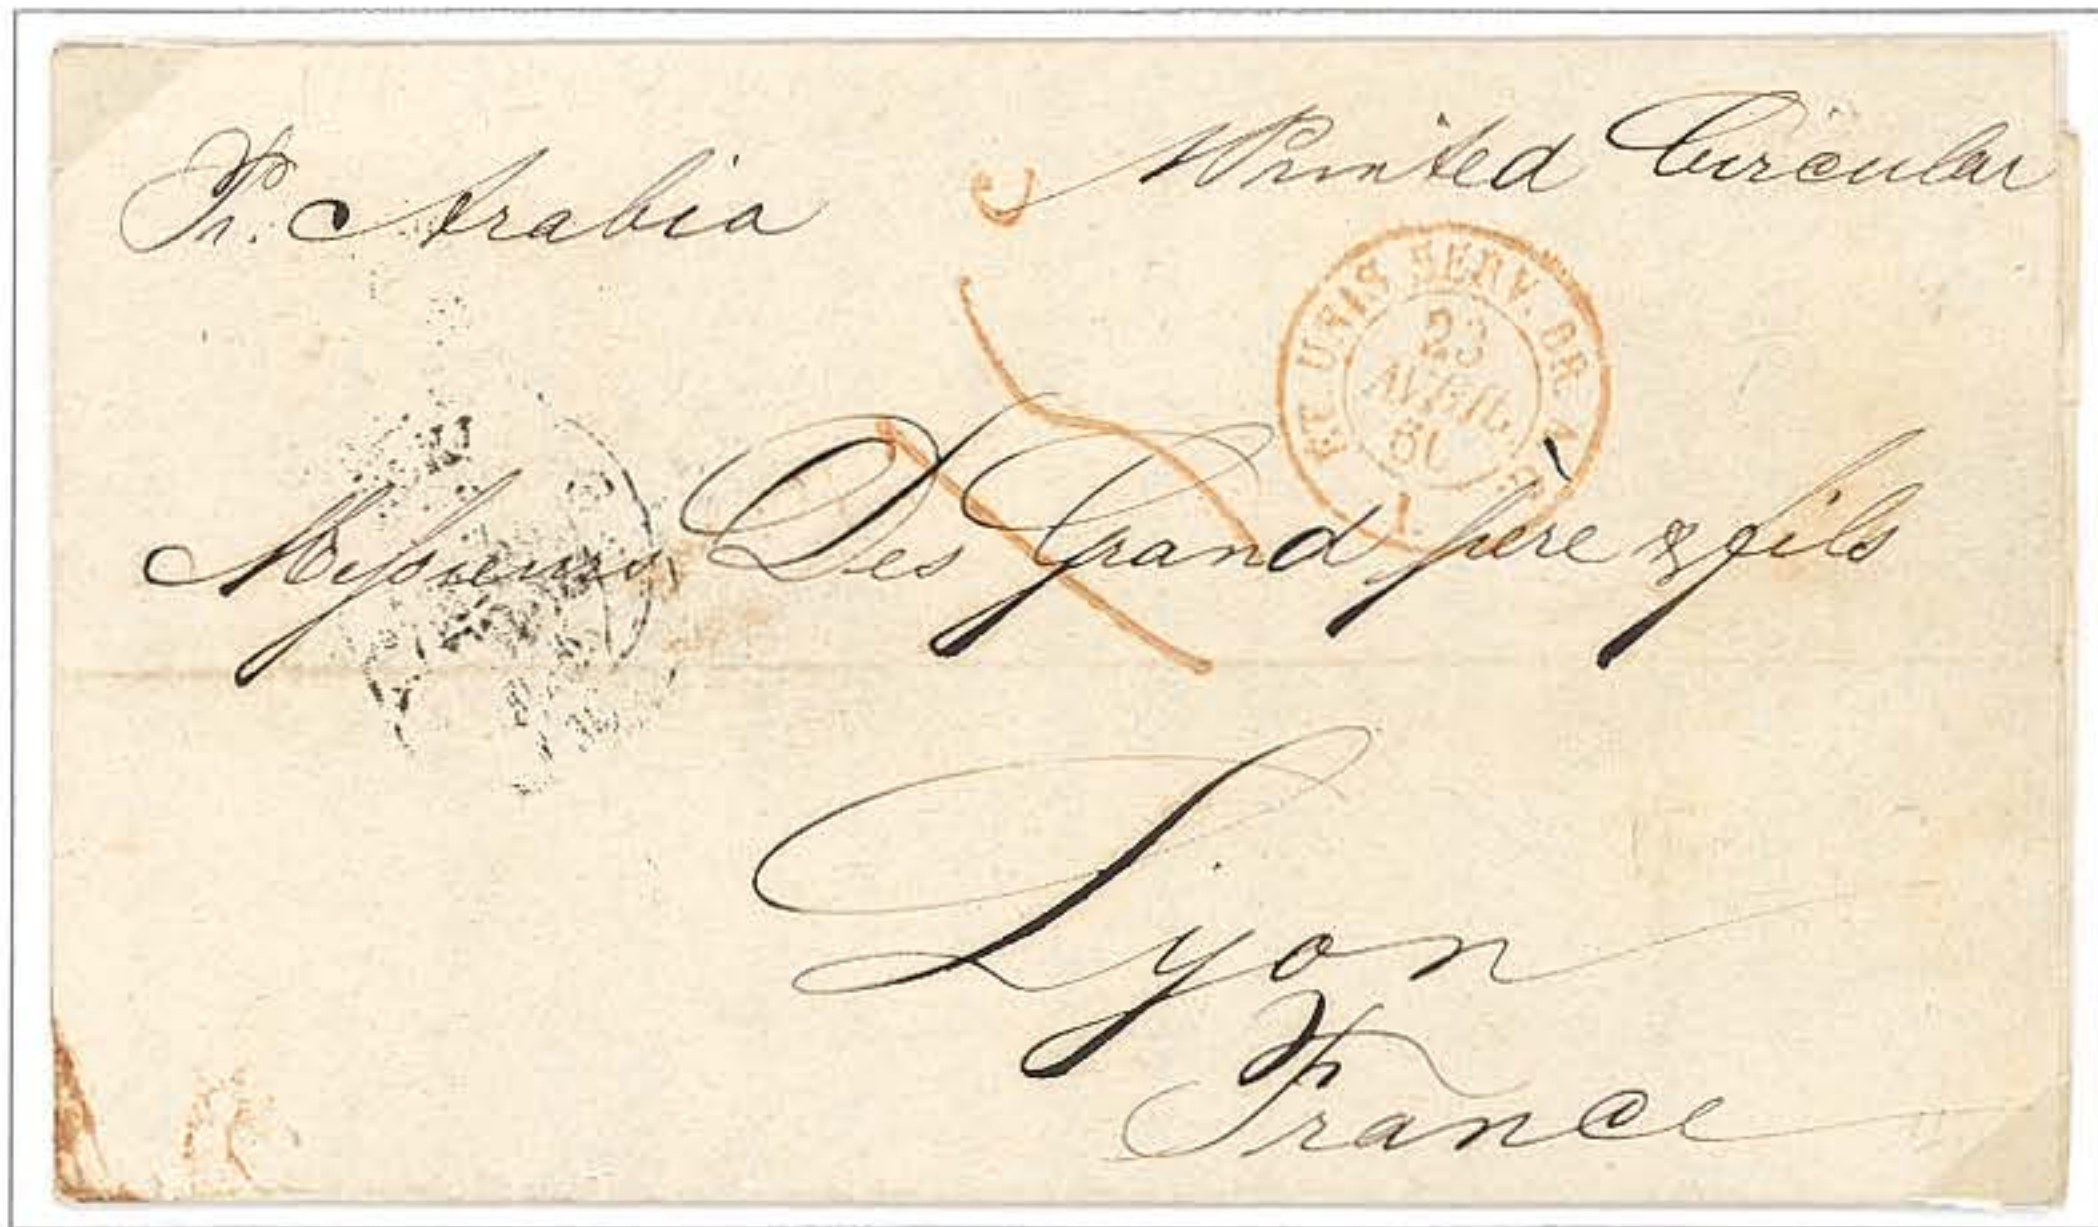 Pr. Arabia
Printed Circular
ET. UNIS SERV. BR. A.
23
AVRIL
60
Messieurs Des Grand père & fils
Lyon
France